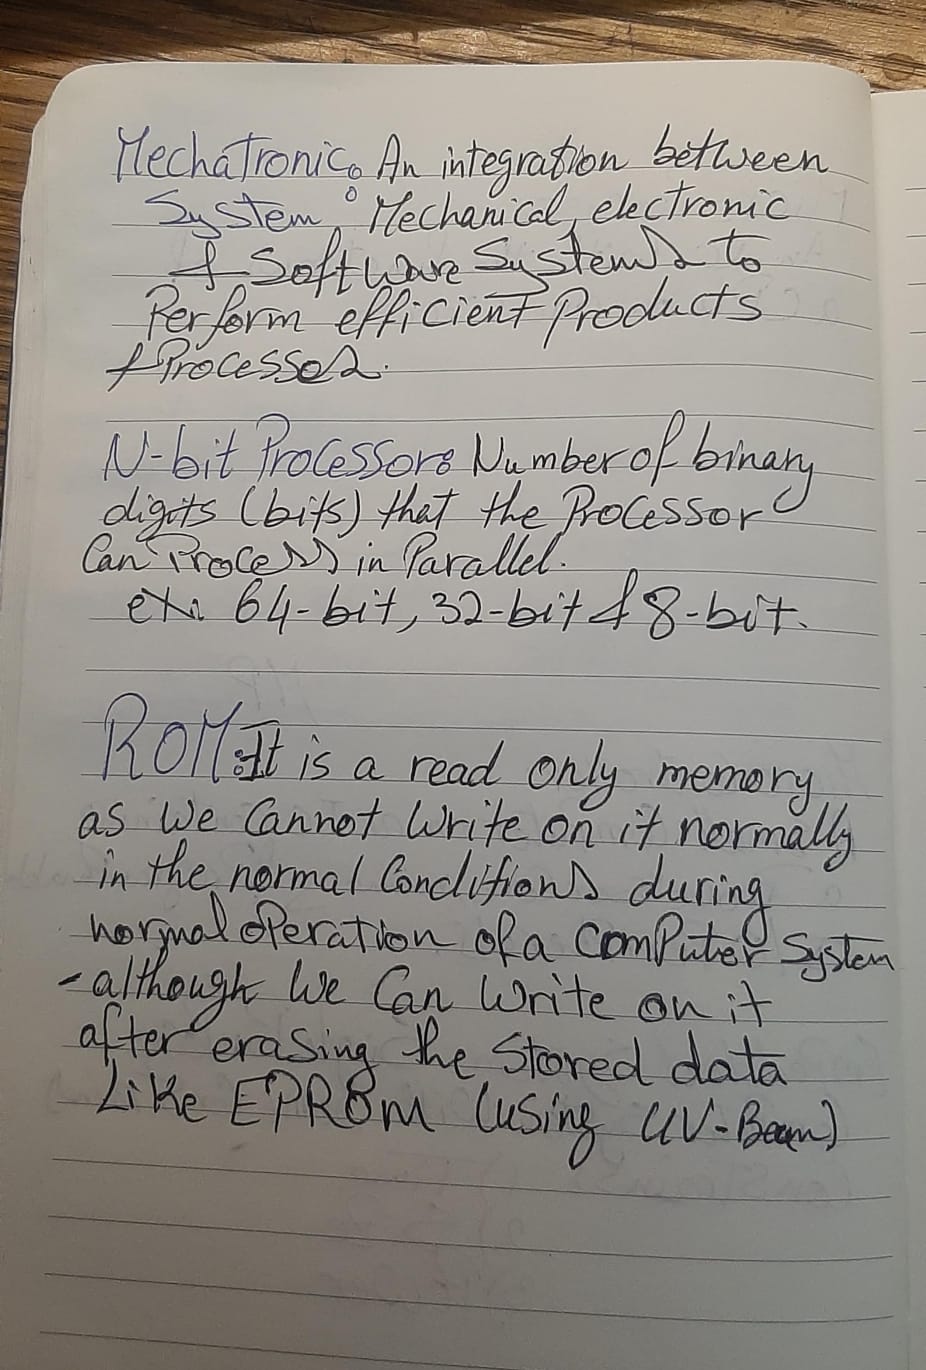 Mechatronic: An integration between
System: Mechanical, electronic
& Software Systems to
Perform efficient Products
& Processes.
N-bit Processor: Number of binary
digits (bits) that the Processor
Can Process in Parallel.
ex: 64-bit, 32-bit & 8-bit.
ROM: It is a read only memory
as We Cannot Write on it normally
in the normal Conditions during
normal operation of a Computer System
- although We Can Write on it
after erasing the Stored data
Like EPROM (using UV-Beam)